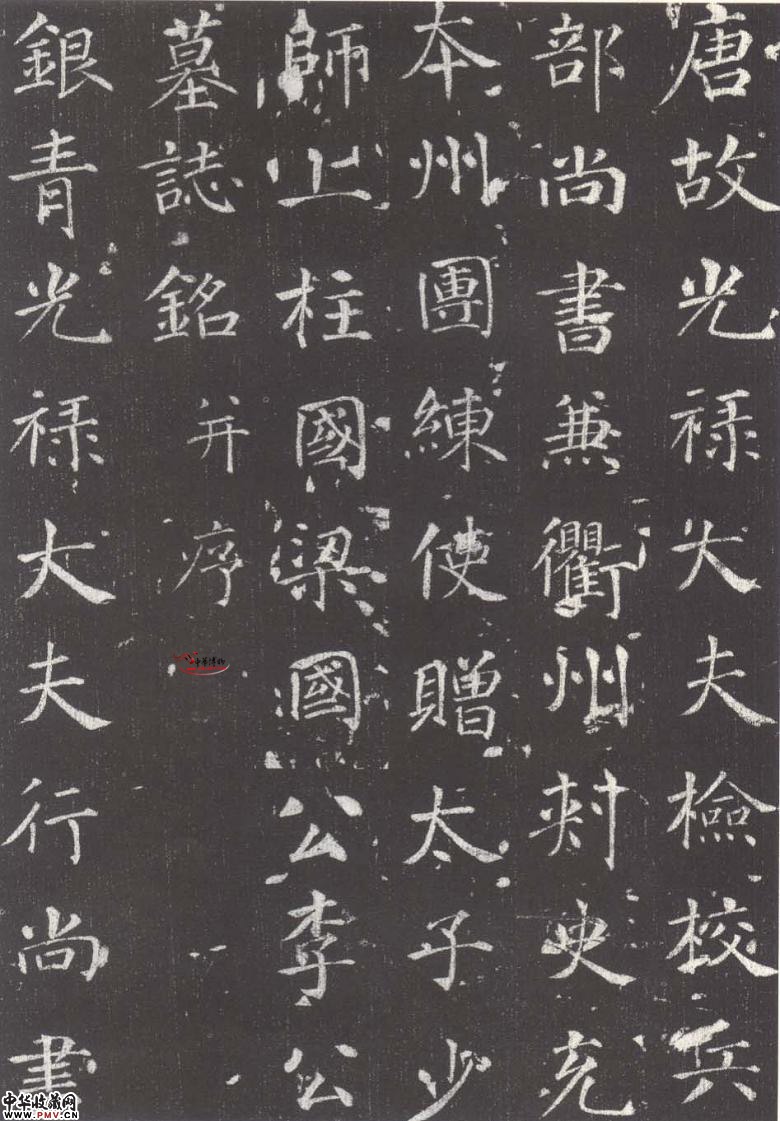 唐故光祿大夫檢校兵
部尚書兼衢州刺史充
本州團練使贈太子少
師上柱國梁國公李公
墓誌銘并序
銀青光祿大夫行尚書
中华收藏网
www.PMV.CN